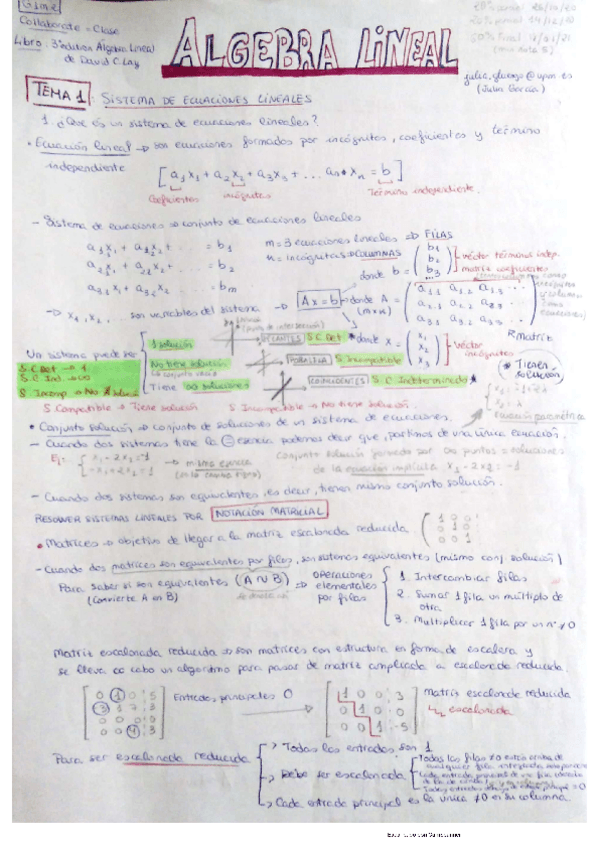 Collaborate = Clase
Libro: 3ª edición Algebra Lineal
de David C. Lay
ALGEBRA LINEAL
(Julia García)
TEMA 1: SISTEMA DE ECUACIONES LINEALES
1. ¿Que es un sistema de ecuaciones lineales?
• Ecuación lineal → son ecuaciones formados por incógnitas, coeficientes y término
independiente
[a₁x₁ + a₂x₂ + a₃x₃ + ... aₙ xₙ = b]
Coeficientes incógnitas Término independiente.
- Sistema de ecuaciones → conjunto de ecuaciones lineales
m = 3 ecuaciones lineales ⇒ FILAS
n = incógnitas ⇒ COLUMNAS
= b₁
= b₂
= bₘ
donde b = (b₁ b₂ b₃)
vector términos indep.
matriz coeficientes
→ x₁, x₂, son variables del sistema → Ax = b → donde A =
(m×n)
Matriz
donde x = (x₁ x₂ x₃) vector incógnitas
Un sistema puede ser
1 solución SECANTES S.C.Det
No tiene solución PARALELA S. Incompatible
Tiene ∞ soluciones COINCIDENTES S.C. Indeterminado
S.C Det → 1
S.C Ind → ∞
S Incomp → No solución
* TIENEN SOLUCIÓN
Ecuación paramétrica
S Compatible → Tiene solución S Incompatible → No tiene solución.
• Conjunto solución → conjunto de soluciones de un sistema de ecuaciones.
- Cuando dos sistemas tiene la = esencia podemos decir que, partimos de una única ecuación.
Ej: { x₁ - 2x₂ = -1
-x₁ + 2x₂ = 1
→ misma esencia
Conjunto solución formado por ∞ puntos = soluciones
de la ecuación implícita x₁ - 2x₂ = -1
- Cuando dos sistemas son equivalentes, es decir, tienen mismo conjunto solución.
RESOLVER SISTEMAS LINEALES POR NOTACIÓN MATRICIAL
• Matrices → objetivo de llegar a la matriz escalonada reducida
(1 0 0
0 1 0
0 0 1)
- Cuando dos matrices son equivalentes por filas, son sistemas equivalentes (mismo conj. solución)
Para saber si son equivalentes (A ∿ B) ⇒ operaciones elementales por filas
(Convierte A en B)
1. Intercambiar filas
2. Sumar 1 fila un múltiplo de otra
3. Multiplicar 1 fila por un nº ≠ 0
Matriz escalonada reducida → son matrices con estructura en forma de escalera y
se lleva a cabo un algoritmo para pasar de matriz ampliada a escalonada reducida.
0 1 0 5
3 1 7 3
0 0 0 0
0 0 4 3
Entradas principales
1 0 0 3
0 0 1 -5
Matriz escalonada reducida
↳ escalonada
Para ser escalonada reducida
→ Todas las entradas son 1
→ Debe ser escalonada
→ Cada entrada principal es la única ≠ 0 en su columna.